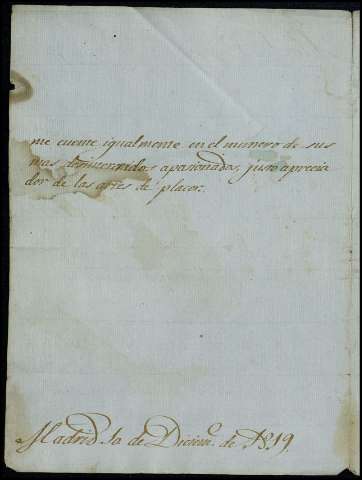 me cuente igualmente en el numero de sus
mas desinteresidos apasionados, justo aprecia
dor de las artes de placer.
Madrid 10 de Diciem.e de 1819.